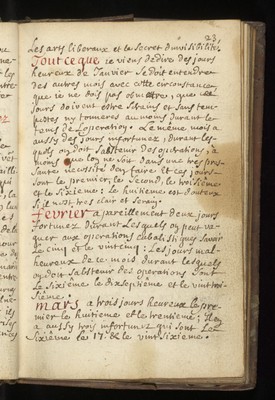 23
Les arts liberaux et le secret d'invisibilité.
Tout ce que ie viens de dire des jours
heureux de Janvier se doit entendre
des autres mois avec cette circonstance
que ie ne dois pas obmettre, que ces
jours doivent estre strains et sans tem-
pestes ny tonneres au moins durant le
tems de L'operation. Le même mois a
aussy des jours infortunez, durant les-
quels on doit s'abstenir des operations, à
moins que lon ne soit dans une tres pres-
sante necessité d'en faire. Et ces jours
sont le premier, le second, le troisième
et le sixième: Le huitieme est douteux
s'il n'est tres clair et serain.
Fevrier a pareillement deux jours
fortunez durant Lesquels on peut va-
quer aux operations cabalistiques savoir
Le cinq et le vintcinq: Les jours mal-
heureux de ce mois durant lesquels
on doit s'abstenir des operations sont
Le sixième le dixseptième et le vint troi-
sième.
Mars a trois jours heureux le pre-
mier le huitieme et le trentieme; il en
a aussy trois infortunez qui sont Le
sixième le 17: & le vintsixième.